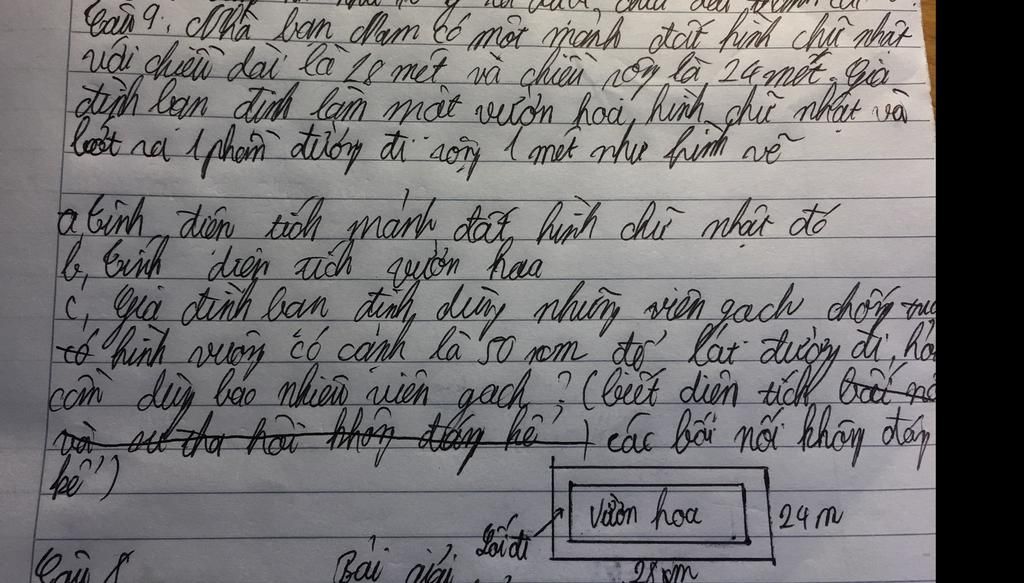 Câu 9. Nhà bạn Nam có một mảnh đất hình chữ nhật
với chiều dài là 28 mét và chiều rộng là 24 mét. Gia
đình bạn định làm một vườn hoa hình chữ nhật và
bớt ra 1 phần đường đi rộng 1 mét như hình vẽ
a, Tính diện tích mảnh đất hình chữ nhật đó
b, Tính diện tích vườn hoa
c, Gia đình bạn định dùng những viên gạch chống
có hình vuông có cạnh là 50 cm để lát đường đi, hỏi
cần dùng bao nhiêu viên gạch? (biết diện tích
và sự hao hụt không đáng kể) các mối nối không đáng
kể)
Vườn hoa
24 m
Lối đi
28 m
Câu 8 Bài giải